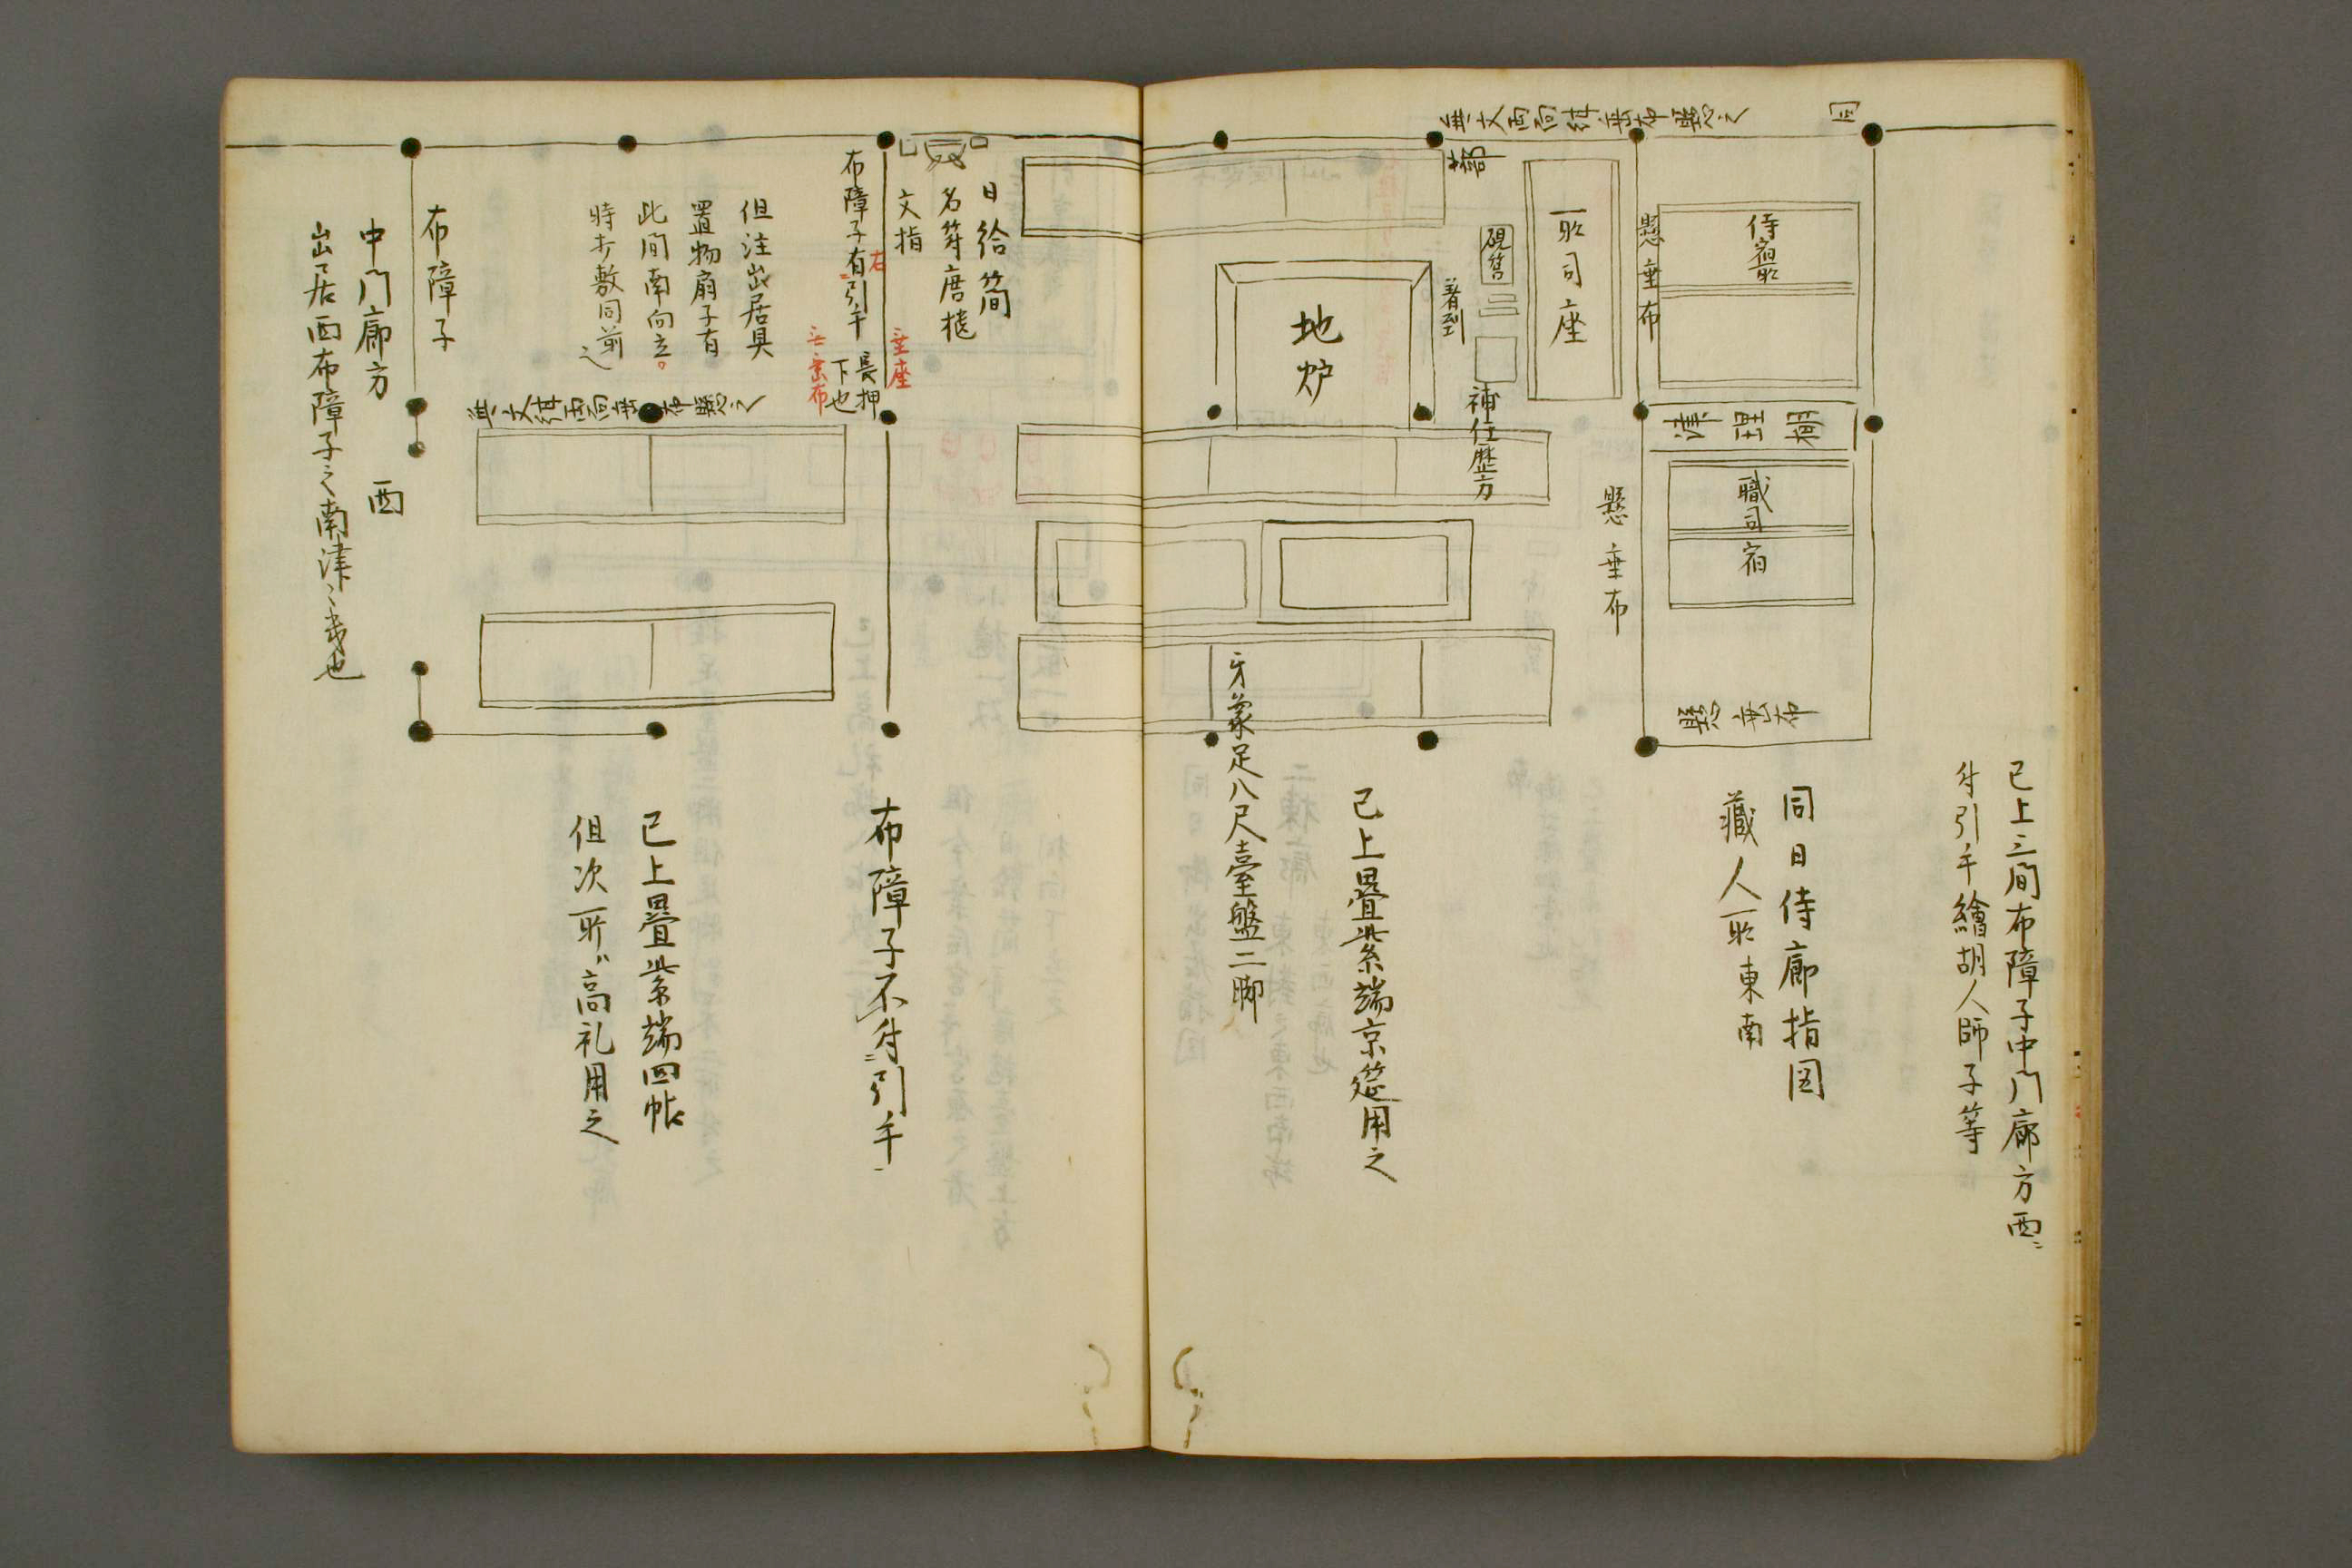 已上三間布障子中門廊方西ニ
付引手繪胡人師子等
同日侍廊指図
藏人所東南
侍宿所
津理棚
職司
宿
懸垂布
懸垂布
懸垂布
所司座
硯筥
着到
補任歴方
地炉
已上畳紫端京筵用之
牙象足八尺臺盤二脚
日給簡
名符唐櫃
文指
布障子有引手
右
長押
下也
垂座
布障子不付引手
但注出居具
置物扇子有
此間南向立
時打敷同前
已上畳紫端四帖
但次所高礼用之
布障子
中門廊方
西
出居西布障子之南